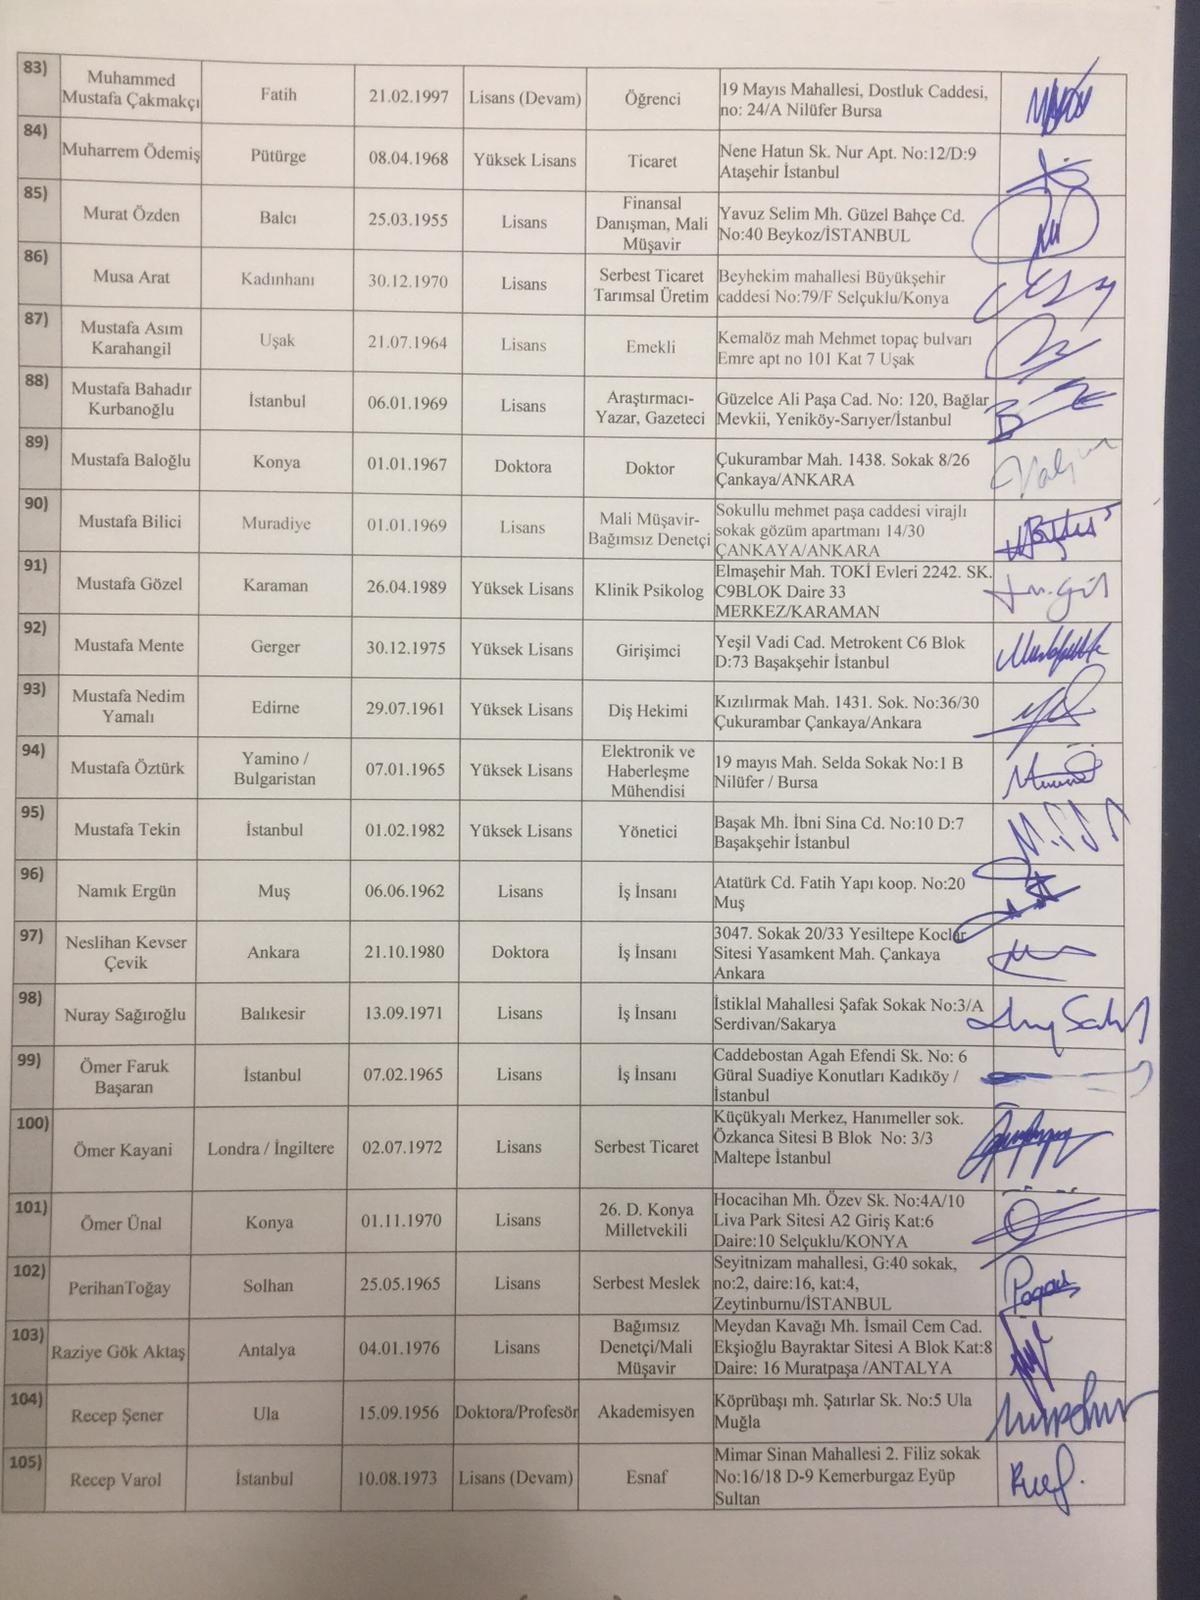 83)
Muhammed
Mustafa Çakmakçı
Fatih
21.02.1997
Lisans (Devam)
Öğrenci
19 Mayıs Mahallesi, Dostluk Caddesi,
no: 24/A Nilüfer Bursa
84)
Muharrem Ödemiş
Pütürge
08.04.1968
Yüksek Lisans
Ticaret
Nene Hatun Sk. Nur Apt. No:12/D:9
Ataşehir İstanbul
85)
Murat Özden
Balcı
25.03.1955
Lisans
Finansal
Danışman, Mali
Müşavir
Yavuz Selim Mh. Güzel Bahçe Cd.
No:40 Beykoz/İSTANBUL
86)
Musa Arat
Kadınhanı
30.12.1970
Lisans
Serbest Ticaret
Tarımsal Üretim
Beyhekim mahallesi Büyükşehir
caddesi No:79/F Selçuklu/Konya
87)
Mustafa Asım
Karahangil
Uşak
21.07.1964
Lisans
Emekli
Kemalöz mah Mehmet topaç bulvarı
Emre apt no 101 Kat 7 Uşak
88)
Mustafa Bahadır
Kurbanoğlu
İstanbul
06.01.1969
Lisans
Araştırmacı-
Yazar, Gazeteci
Güzelce Ali Paşa Cad. No: 120, Bağlar
Mevkii, Yeniköy-Sarıyer/İstanbul
89)
Mustafa Baloğlu
Konya
01.01.1967
Doktora
Doktor
Çukurambar Mah. 1438. Sokak 8/26
Çankaya/ANKARA
90)
Mustafa Bilici
Muradiye
01.01.1969
Lisans
Mali Müşavir-
Bağımsız Denetçi
Sokullu mehmet paşa caddesi virajlı
sokak gözüm apartmanı 14/30
ÇANKAYA/ANKARA
91)
Mustafa Gözel
Karaman
26.04.1989
Yüksek Lisans
Klinik Psikolog
Elmaşehir Mah. TOKİ Evleri 2242. SK.
C9BLOK Daire 33
MERKEZ/KARAMAN
92)
Mustafa Mente
Gerger
30.12.1975
Yüksek Lisans
Girişimci
Yeşil Vadi Cad. Metrokent C6 Blok
D:73 Başakşehir İstanbul
93)
Mustafa Nedim
Yamalı
Edirne
29.07.1961
Yüksek Lisans
Diş Hekimi
Kızılırmak Mah. 1431. Sok. No:36/30
Çukurambar Çankaya/Ankara
94)
Mustafa Öztürk
Yamino /
Bulgaristan
07.01.1965
Yüksek Lisans
Elektronik ve
Haberleşme
Mühendisi
19 mayıs Mah. Selda Sokak No:1 B
Nilüfer / Bursa
95)
Mustafa Tekin
İstanbul
01.02.1982
Yüksek Lisans
Yönetici
Başak Mh. İbni Sina Cd. No:10 D:7
Başakşehir İstanbul
96)
Namık Ergün
Muş
06.06.1962
Lisans
İş İnsanı
Atatürk Cd. Fatih Yapı koop. No:20
Muş
97)
Neslihan Kevser
Çevik
Ankara
21.10.1980
Doktora
İş İnsanı
3047. Sokak 20/33 Yesiltepe Koclar
Sitesi Yasamkent Mah. Çankaya
Ankara
98)
Nuray Sağıroğlu
Balıkesir
13.09.1971
Lisans
İş İnsanı
İstiklal Mahallesi Şafak Sokak No:3/A
Serdivan/Sakarya
99)
Ömer Faruk
Başaran
İstanbul
07.02.1965
Lisans
İş İnsanı
Caddebostan Agah Efendi Sk. No: 6
Güral Suadiye Konutları Kadıköy /
İstanbul
100)
Ömer Kayani
Londra / İngiltere
02.07.1972
Lisans
Serbest Ticaret
Küçükyalı Merkez, Hanımeller sok.
Özkanca Sitesi B Blok No: 3/3
Maltepe İstanbul
101)
Ömer Ünal
Konya
01.11.1970
Lisans
26. D. Konya
Milletvekili
Hocacihan Mh. Özev Sk. No:4A/10
Liva Park Sitesi A2 Giriş Kat:6
Daire:10 Selçuklu/KONYA
102)
PerihanToğay
Solhan
25.05.1965
Lisans
Serbest Meslek
Seyitnizam mahallesi, G:40 sokak,
no:2, daire:16, kat:4,
Zeytinburnu/İSTANBUL
103)
Raziye Gök Aktaş
Antalya
04.01.1976
Lisans
Bağımsız
Denetçi/Mali
Müşavir
Meydan Kavağı Mh. İsmail Cem Cad.
Ekşioğlu Bayraktar Sitesi A Blok Kat:8
Daire: 16 Muratpaşa /ANTALYA
104)
Recep Şener
Ula
15.09.1956
Doktora/Profesör
Akademisyen
Köprübaşı mh. Şatırlar Sk. No:5 Ula
Muğla
105)
Recep Varol
İstanbul
10.08.1973
Lisans (Devam)
Esnaf
Mimar Sinan Mahallesi 2. Filiz sokak
No:16/18 D-9 Kemerburgaz Eyüp
Sultan